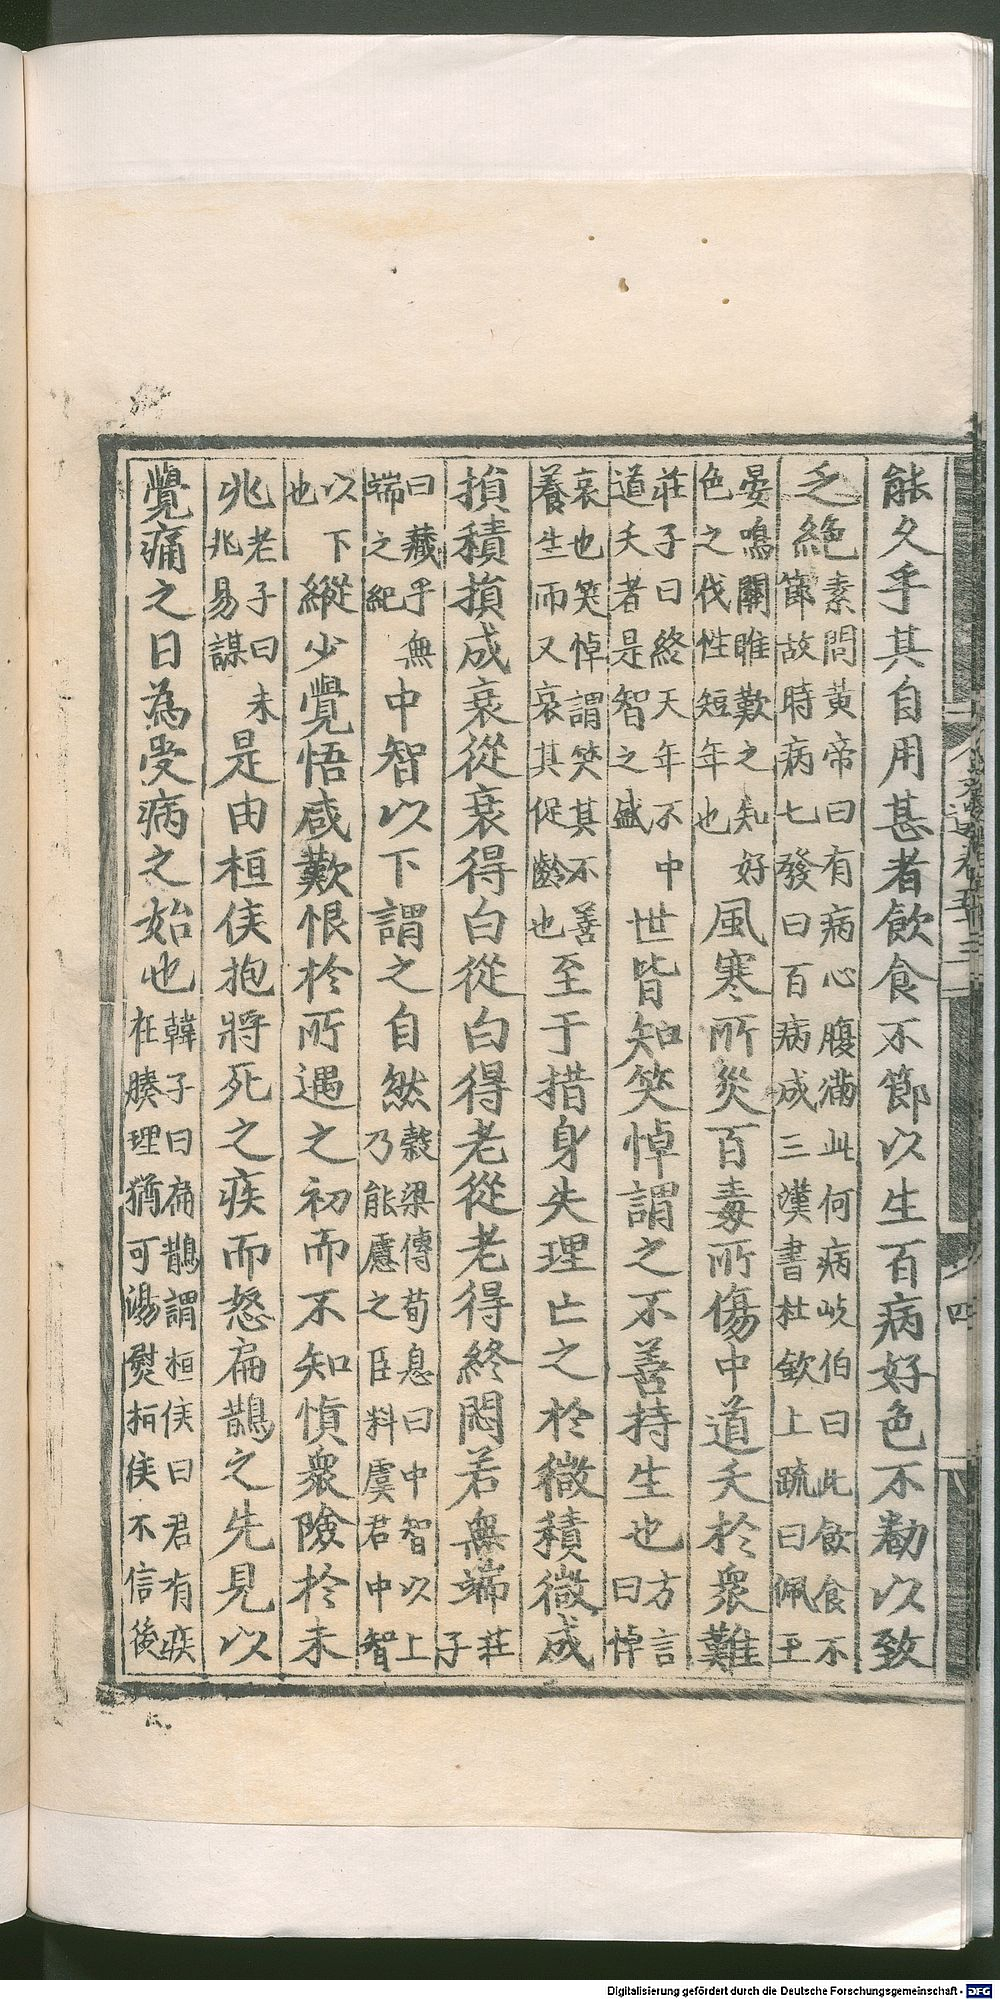 能久乎其自用甚者飲食不節以生百病好色不勌以致
乏絶素問黃帝曰有病心腹滿此何病岐伯曰此飲食不
節故時病七發曰百病咸三漢書杜欽上疏曰佩玉
晏鳴關雎歎之知好
色之伐性短年也風寒所災百毒所傷中道夭於衆難
莊子曰終天年不中
道夭者是智之盛世皆知笑悼謂之不善持生也方言
曰悼
哀也笑悼謂笑其不善
養生而又哀其促齡也至于措身失理亡之於微積微成
損積損成衰從衰得白從白得老從老得終悶若無端莊
子
曰藏乎無
端之紀中智以下謂之自然穀梁傳荀息曰中智以上
乃能慮之臣料虞君中智
以下
也縱少覺悟咸歎恨於所遇之初而不知慎衆險於未
兆老子曰未
兆易謀是由桓侯抱將死之疾而怒扁鵲之先見以
覺痛之日為受病之始也韓子曰扁鵲謂桓侯曰君有疾
在腠理猶可湯熨桓侯不信後
Digitalisierung gefördert durch die Deutsche Forschungsgemeinschaft - DFG